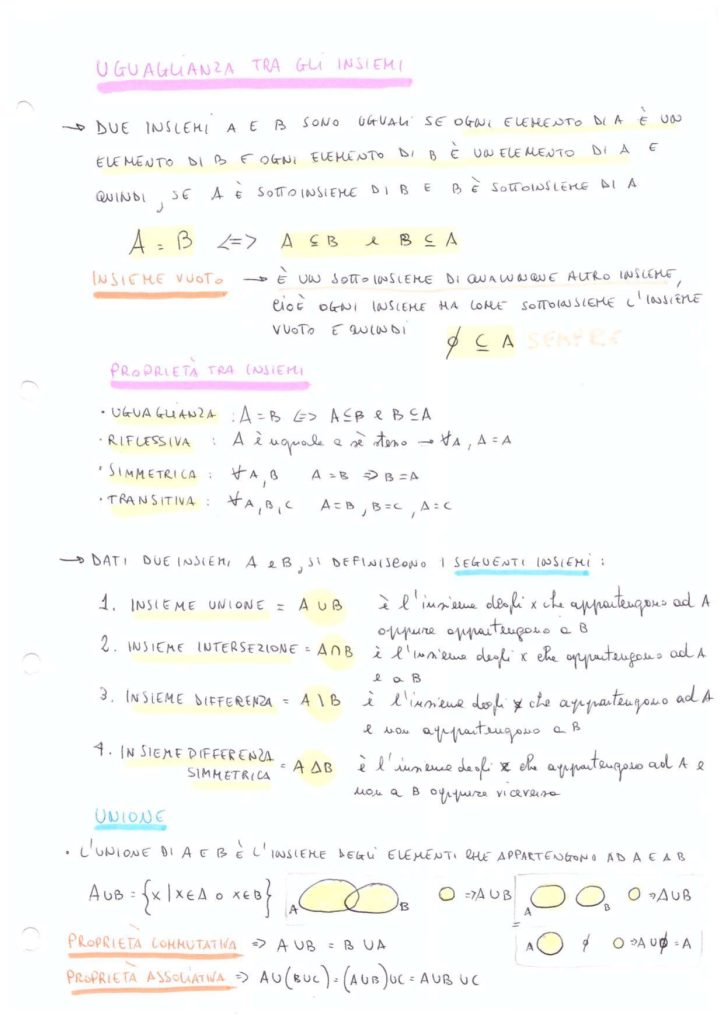 UGUAGLIANZA TRA GLI INSIEMI
→ DUE INSIEMI A E B SONO UGUALI SE OGNI ELEMENTO DI A È UN
ELEMENTO DI B E OGNI ELEMENTO DI B È UN ELEMENTO DI A E
QUINDI, SE A È SOTTOINSIEME DI B E B È SOTTOINSIEME DI A
A = B <=> A ⊆ B e B ⊆ A
INSIEME VUOTO → È UN SOTTOINSIEME DI QUALUNQUE ALTRO INSIEME,
CIOÈ OGNI INSIEME HA COME SOTTOINSIEME L'INSIEME
VUOTO E QUINDI ϕ ⊆ A SEMPRE
PROPRIETÀ TRA INSIEMI
• UGUAGLIANZA : A = B <=> A ⊆ B e B ⊆ A
• RIFLESSIVA : A è uguale a sè stesso → ∀A, A = A
• SIMMETRICA : ∀A, B A = B => B = A
• TRANSITIVA : ∀A, B, C A = B, B = C, A = C
→ DATI DUE INSIEMI A e B, SI DEFINISCONO I SEGUENTI INSIEMI :
1. INSIEME UNIONE = A ∪ B è l'insieme degli x che appartengono ad A
oppure appartengono a B
2. INSIEME INTERSEZIONE = A ∩ B è l'insieme degli x che appartengono ad A
e a B
3. INSIEME DIFFERENZA = A \ B è l'insieme degli x che appartengono ad A
e non appartengono a B
4. INSIEME DIFFERENZA
SIMMETRICA = A Δ B è l'insieme degli x che appartengono ad A e
non a B oppure viceversa
UNIONE
• L'UNIONE DI A E B È L'INSIEME DEGLI ELEMENTI CHE APPARTENGONO AD A E A B
A ∪ B = {x | x ∈ A o x ∈ B} A B => A ∪ B A B => A ∪ B
A ϕ => A ∪ ϕ = A
PROPRIETÀ COMMUTATIVA => A ∪ B = B ∪ A
PROPRIETÀ ASSOCIATIVA => A ∪ (B ∪ C) = (A ∪ B) ∪ C = A ∪ B ∪ C